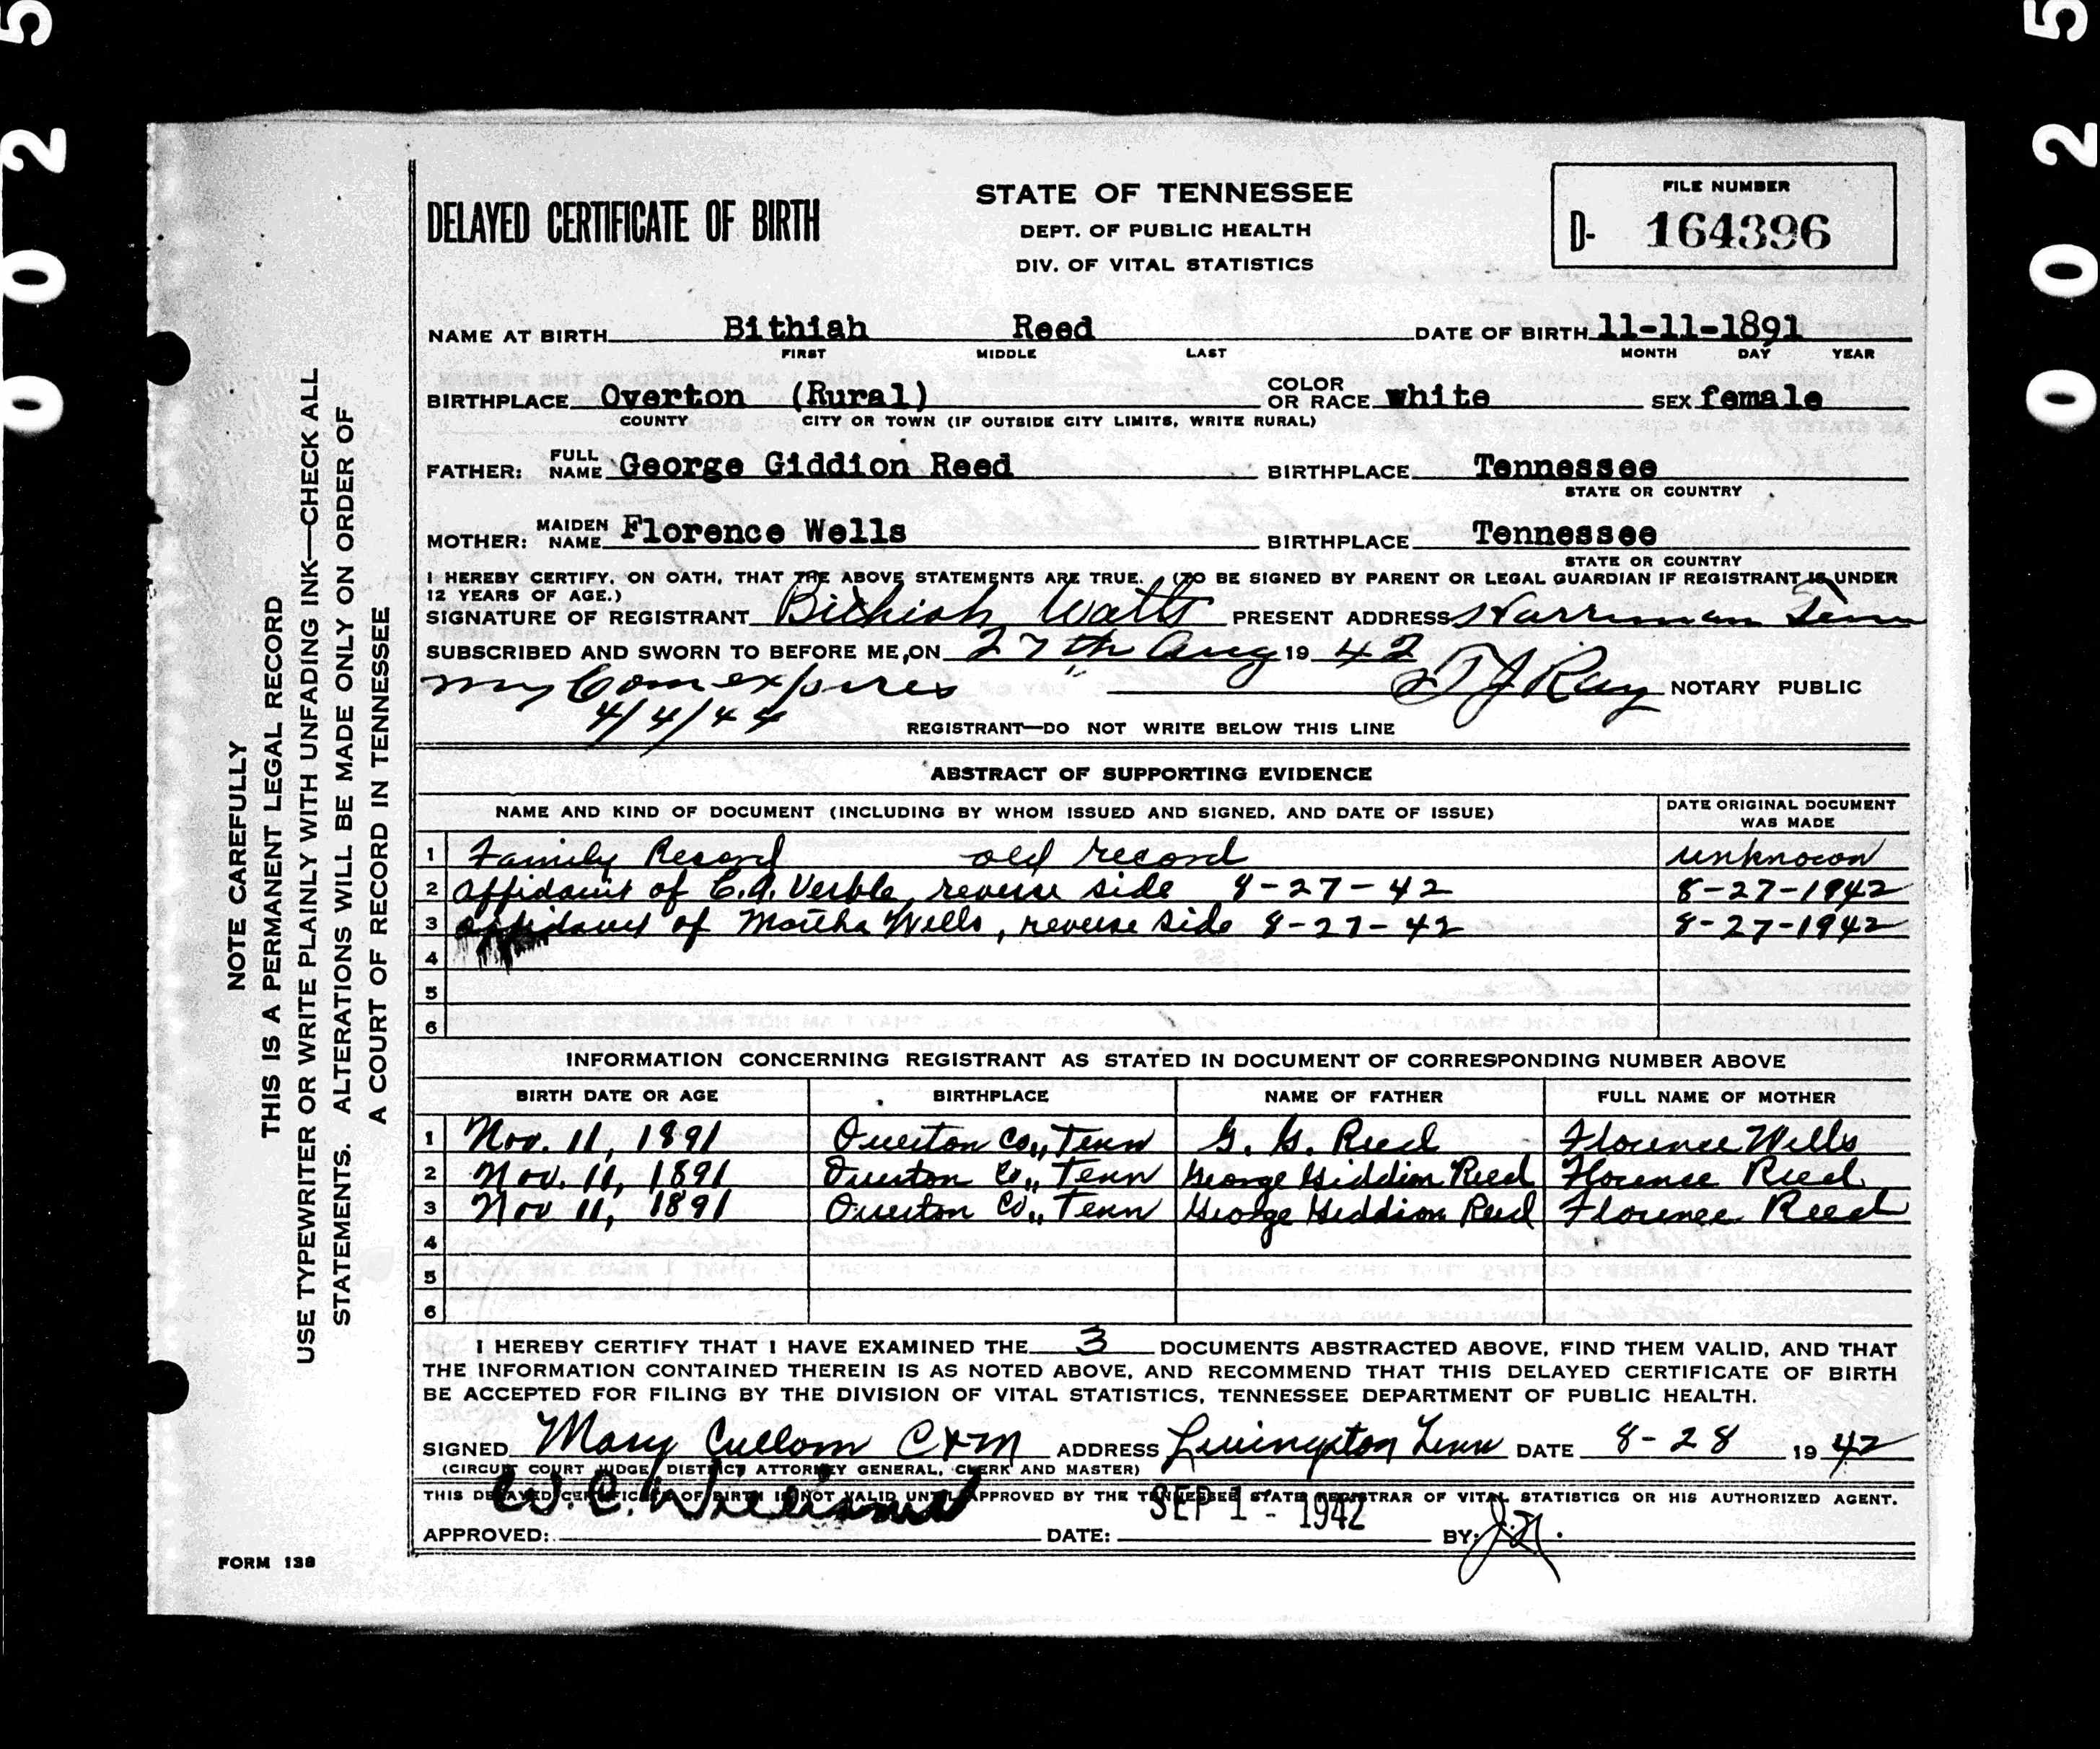 0 0 2 5
0 0 2 5
NOTE CAREFULLY
THIS IS A PERMANENT LEGAL RECORD
USE TYPEWRITER OR WRITE PLAINLY WITH UNFADING INK—CHECK ALL
STATEMENTS. ALTERATIONS WILL BE MADE ONLY ON ORDER OF
A COURT OF RECORD IN TENNESSEE
DELAYED CERTIFICATE OF BIRTH
STATE OF TENNESSEE
DEPT. OF PUBLIC HEALTH
DIV. OF VITAL STATISTICS
FILE NUMBER
D- 164396
NAME AT BIRTH Bithiah Reed DATE OF BIRTH 11-11-1891
FIRST MIDDLE LAST MONTH DAY YEAR
BIRTHPLACE Overton (Rural) COLOR OR RACE White SEX female
COUNTY CITY OR TOWN (IF OUTSIDE CITY LIMITS, WRITE RURAL)
FATHER: FULL NAME George Giddion Reed BIRTHPLACE Tennessee
STATE OR COUNTRY
MOTHER: MAIDEN NAME Florence Wells BIRTHPLACE Tennessee
STATE OR COUNTRY
I HEREBY CERTIFY, ON OATH, THAT THE ABOVE STATEMENTS ARE TRUE. (TO BE SIGNED BY PARENT OR LEGAL GUARDIAN IF REGISTRANT IS UNDER
12 YEARS OF AGE.)
SIGNATURE OF REGISTRANT Bithiah Watts PRESENT ADDRESS Harriman Tenn
SUBSCRIBED AND SWORN TO BEFORE ME, ON 27th Aug 19 42
my Com expires T J Ray NOTARY PUBLIC
4/4/44
REGISTRANT—DO NOT WRITE BELOW THIS LINE
ABSTRACT OF SUPPORTING EVIDENCE
NAME AND KIND OF DOCUMENT (INCLUDING BY WHOM ISSUED AND SIGNED, AND DATE OF ISSUE) DATE ORIGINAL DOCUMENT WAS MADE
1 Family Record old record unknown
2 affidavit of C.A. Verble, reverse side 8-27-42 8-27-1942
3 affidavit of Martha Wells, reverse side 8-27-42 8-27-1942
4
5
6
INFORMATION CONCERNING REGISTRANT AS STATED IN DOCUMENT OF CORRESPONDING NUMBER ABOVE
BIRTH DATE OR AGE BIRTHPLACE NAME OF FATHER FULL NAME OF MOTHER
1 Nov. 11, 1891 Overton Co., Tenn G. G. Reed Florence Wells
2 Nov. 11, 1891 Overton Co., Tenn George Giddion Reed Florence Reed
3 Nov 11, 1891 Overton Co., Tenn George Giddion Reed Florence Reed
4
5
6
I HEREBY CERTIFY THAT I HAVE EXAMINED THE 3 DOCUMENTS ABSTRACTED ABOVE, FIND THEM VALID, AND THAT
THE INFORMATION CONTAINED THEREIN IS AS NOTED ABOVE, AND RECOMMEND THAT THIS DELAYED CERTIFICATE OF BIRTH
BE ACCEPTED FOR FILING BY THE DIVISION OF VITAL STATISTICS, TENNESSEE DEPARTMENT OF PUBLIC HEALTH.
SIGNED Mary Cullom C & M ADDRESS Livingston Tenn DATE 8-28 19 42
(CIRCUIT COURT JUDGE, DISTRICT ATTORNEY GENERAL, CLERK AND MASTER)
THIS DELAYED CERTIFICATE OF BIRTH IS NOT VALID UNTIL APPROVED BY THE TENNESSEE STATE REGISTRAR OF VITAL STATISTICS OR HIS AUTHORIZED AGENT.
APPROVED: W. C. Williams DATE: SEP 1 - 1942 BY:
FORM 138